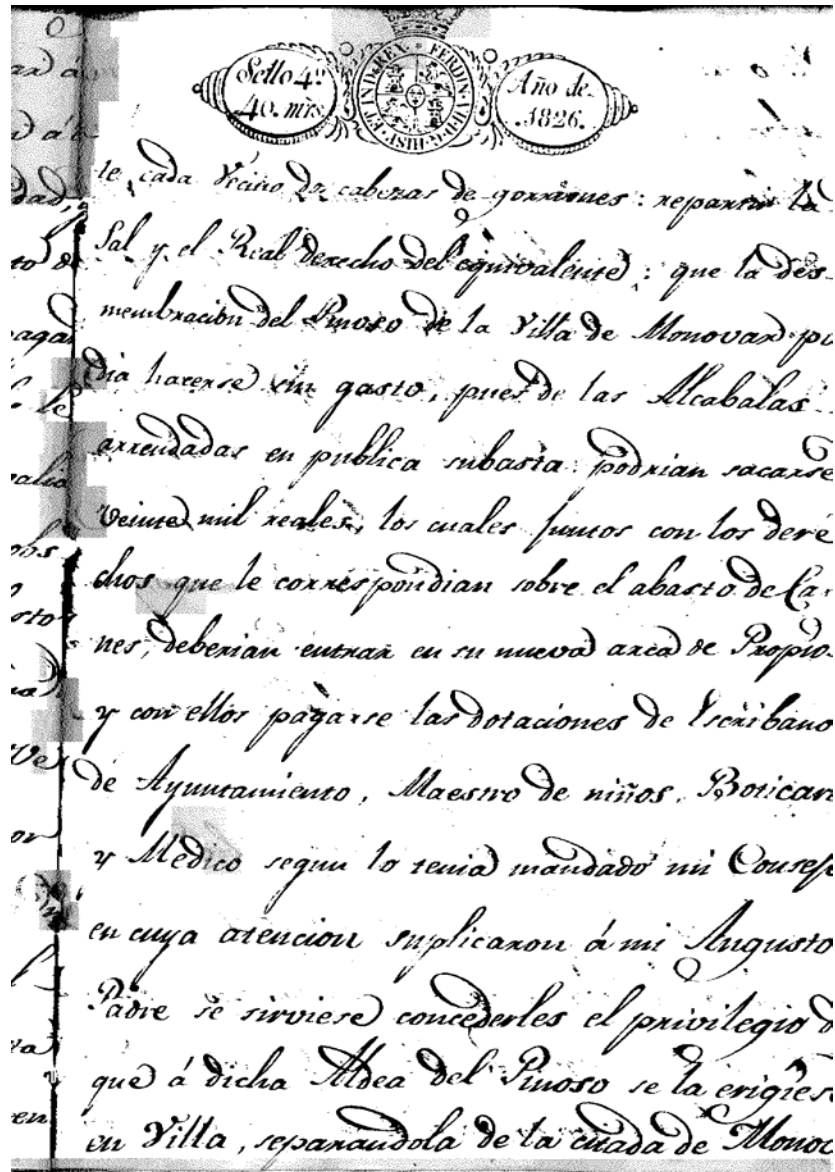 Sello 4º
40. mrs
FERDIN. VII. D. G. HISP. ET IND. REX.
Año de
1826.
le cada Vecino de cabezas de gorriones: repartir la
Sal y el Real derecho del equivalente: que la des-
membracion del Pinoso de la Villa de Monovar po
dia hacerse sin gasto, pues de las Alcabalas
arrendadas en publica subasta podrian sacarse
veinte mil reales, los cuales juntos con los dere
chos que le correspondian sobre el abasto de Car
nes, deberian entrar en su nueva arca de Propios
y con ellos pagarse las dotaciones de Escribano
de Ayuntamiento, Maestro de niños, Boticario
y Medico segun lo tenia mandado mi Consejo
en cuya atencion suplicaron á mi Augusto
Padre se sirviese concederles el privilegio d
que á dicha Aldea del Pinoso se la erigiese
en Villa, separandola de la citada de Monov